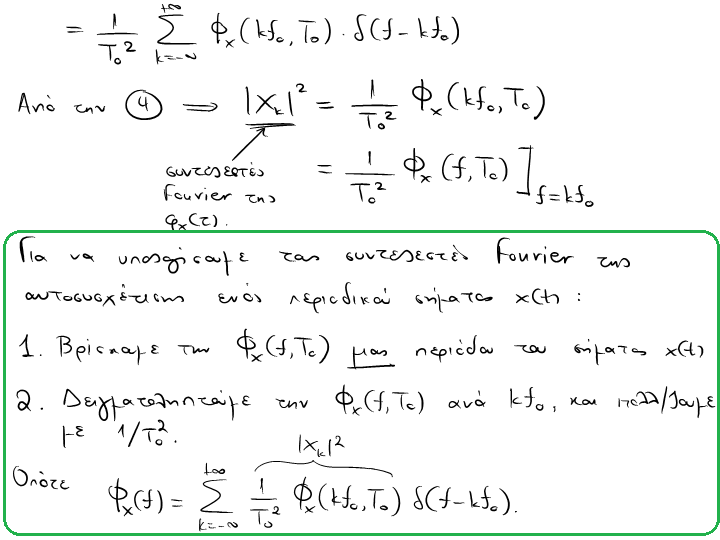 = 1/T₀² Σ_{k=-∞}^{+∞} Φₓ(kf₀,T₀) · δ(f-kf₀)
Από την (4) ⟹ |Xₖ|² = 1/T₀² Φₓ(kf₀,T₀)
συντελεστές
Fourier της
φₓ(τ).
= 1/T₀² Φₓ(f,T₀)]_{f=kf₀}
Για να υπολογίσουμε τους συντελεστές Fourier της
αυτοσυσχέτισης ενός περιοδικού σήματος x(t) :
1. Βρίσκουμε την Φₓ(f,T₀) μιας περιόδου του σήματος x(t)
2. Δειγματοληπτούμε την Φₓ(f,T₀) ανά kf₀, και πολλ/ζουμε
με 1/T₀².
|Xₖ|²
Οπότε Φₓ(f) = Σ_{k=-∞}^{+∞} 1/T₀² Φₓ(kf₀,T₀) δ(f-kf₀).